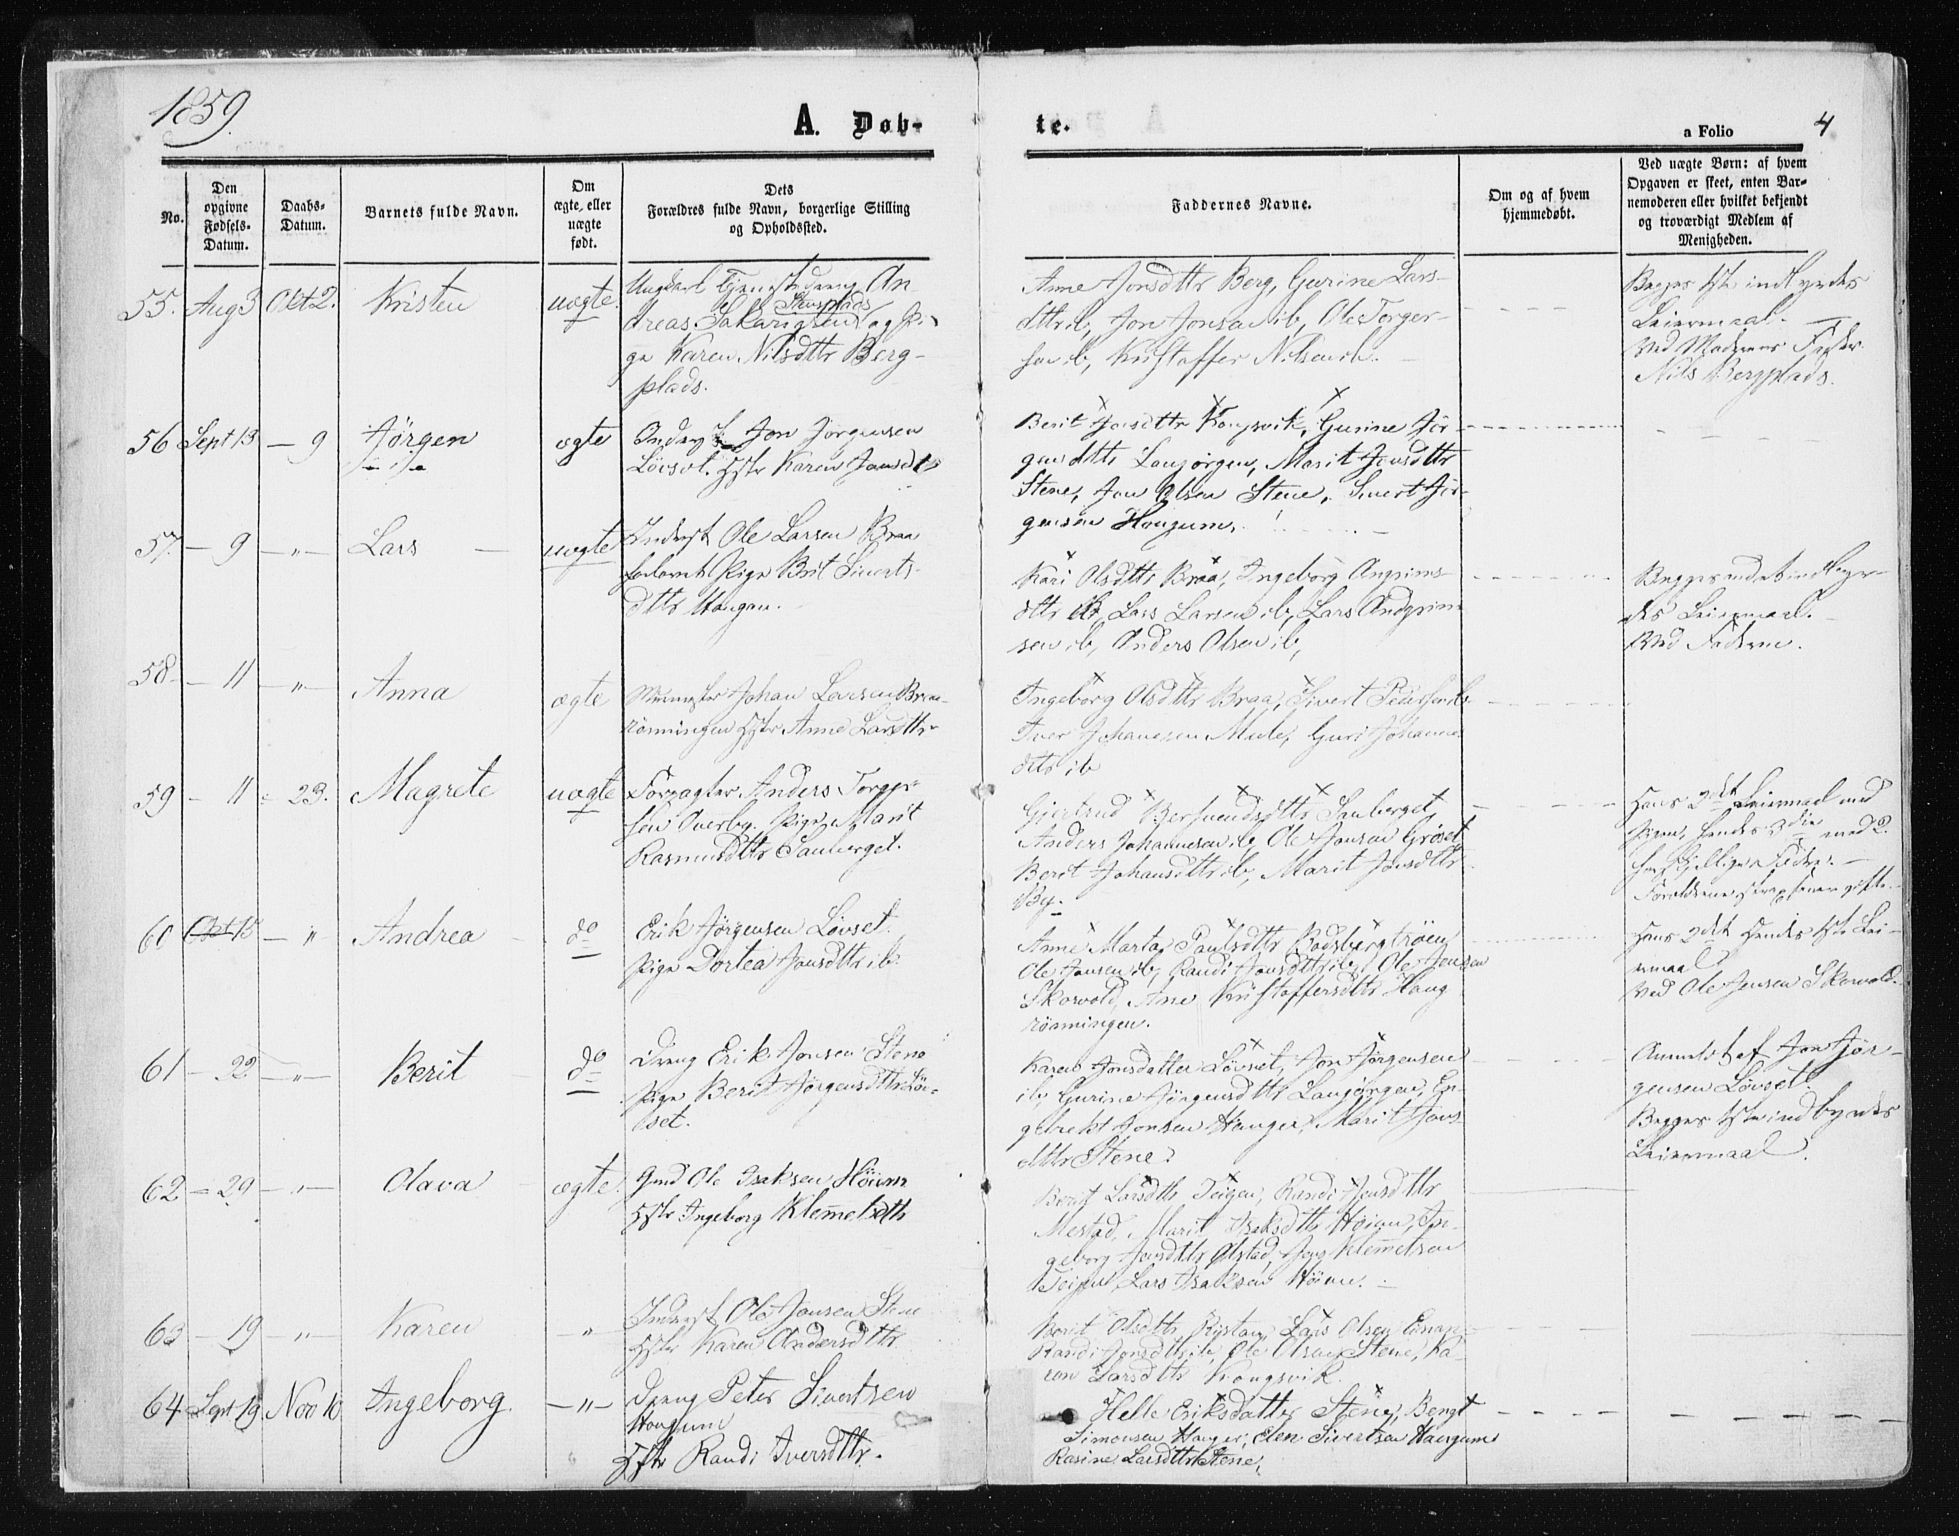 1859.
A. Døb-
te.
a Folio 4
No.
Den opgivne Fødsels-Datum.
Daabs-Datum.
Barnets fulde Navn.
Om ægte, eller uægte født.
Dets Forældres fulde Navn, borgerlige Stilling og Opholdssted.
Faddernes Navne.
Om og af hvem hjemmedøbt.
Ved uægte Børn: af hvem Opgaven er skeet, enten Barnemoderen eller hvilket bekjendt og troværdigt Medlem af Menigheden.
55. Aug 3 Okt 2. Kristen uægte
Ungkarl Tjenestedreng An-
dreas Sakarigsen Stensplads og Pi-
ge Karen Nilsdttr Berg-
plads.
Anne Jonsdttr Berg, Gurine Lars-
dttr ib, Jon Jonsen ib, Ole Torger-
sen ib, Kristoffer Nilsen ib.
Begges 1ste indbyrdes
Leiermaal.
Ved Moderens Fader
Nils Bergplads.
56 Sept 13 - 9 Jörgen ægte
Inderst Jon Jörgensen
Lövset. Hstr Karen Jonsdtr
Berit Jonsdttr Kongsvik, Gurine Jör-
gensdttr Lanjörgen, Marit Jensdttr
Stene, Jon Olsen Stene, Sivert Jör-
gensen Haugum.
57. - 9 - " - Lars - uægte
Inderst Ole Larsen Braa
forlovet Pige Brit Siverts-
dttr Haugan.
Kari Olsdttr Braa, Ingeborg Angrims-
dttr ib, Lars Larsen ib, Lars Andgrim
sen ib, Anders Olsen ib,
Begges andet indbyr-
des Leiermaal.
Ved Faderen.
58 - 11 - " - Anna ægte
Johan Larsen Braa-
rönningen Hstr Anne Larsdttr
Ingeborg Olsdttr Braa, Sivert Pedersen ib
Iver Johannesen Mule, Guri Johannes
dttr ib
59 - 11 - 23. Magrete uægte
Forpagter Anders Torger-
sen Overby. Pige Marit
Rasmusdttr Sanberget.
Gjertrud Bersvendsdttr Sanberget,
Anders Johannesen ib, Ole Jonsen Gröset
Berit Johansdttr ib, Marit Jonsdttr
By.
Hans 2det Leiermaal med
Pigen, hendes 3die med 2
forskjellige Fædre.
60 Okt 15 - " Andrea - do
Erik Jörgensen Lövset.
Pige Dortea Jonsdttr ib.
Anne Marta Paulsdttr Bodsbergtröen
Ole Jensen ib, Randi Jonsdttr ib, Ole Jensen
Skorvold, Ane Kristoffersdttr Haug
rönningen.
Hans 2det Hendes 1ste Lei-
ermaal
Ved Ole Jensen Skorvold.
61 - 22 - " - Berit - do
Dreng Erik Jonsen Stene
Pige Berit Jörgensdttr Löv-
set.
Karen Jonsdatter Lövset, Jon Jörgensen
ib, Gurine Jörgensdttr Lanjörgen, En-
gebrekt Jonsen Hanger, Marit Jons
dttr Stene.
Anmeldt af Jon Jör-
gensen Lövset.
Begges 1ste indbyrdes
Leiermaal.
62 - 29 - " - Olava - ægte.
Gmd Ole Isaksen Höivin
Hstr Ingeborg Klemetsdttr
Berit Larsdttr Teigen, Randi Jonsdttr
Mestad, Marit Isaksdttr Höian, In-
geborg Jonsdttr Olstad, Klemetsen
Teigen, Lars Isaksen Höian.
63 - 19 - " - Karen - "
Inderst Ole Jonsen Stene
Hstr Karen Andersdttr
Berit Olsdttr Rystan, Lars Olsen
Randi Jonsdttr ib, Ole Olsen Stene, Ka-
ren Larsdttr Kongsvik.
64 Sept 19 Nov 10 Ingeborg. - " -
Dreng Peter Sivertsen
Haugum
Hstr Randi Iversdttr.
Helle Eriksdatter Stene, Bengt
Simonsen Hanger, Elen Sivertsen Haugum
Rasine Larsdttr Stene,